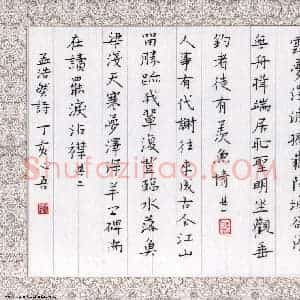 雲夢澤波撼岳陽城欲濟
無舟楫端居恥聖明坐觀垂
釣者徒有羨魚情 其一
人事有代謝往來成古今江山
留勝蹟我輩復登臨水落魚
梁淺天寒夢澤深羊公碑尚
在讀罷淚沾襟 其二
孟浩然詩 丁亥 吾